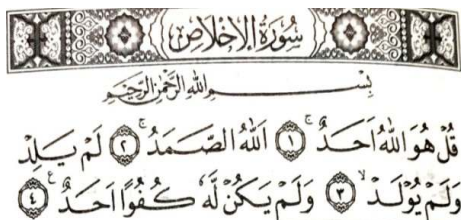 سُورَةُ الْإِخْلَاصِ
بِسْمِ اللهِ الرَّحْمٰنِ الرَّحِيْمِ
قُلْ هُوَ اللهُ اَحَدٌ ۚ ﴿١﴾ اَللهُ الصَّمَدُ ۚ ﴿٢﴾ لَمْ يَلِدْ
وَلَمْ يُوْلَدْ ۙ ﴿٣﴾ وَلَمْ يَكُنْ لَّهٗ كُفُوًا اَحَدٌ ࣖ ﴿٤﴾